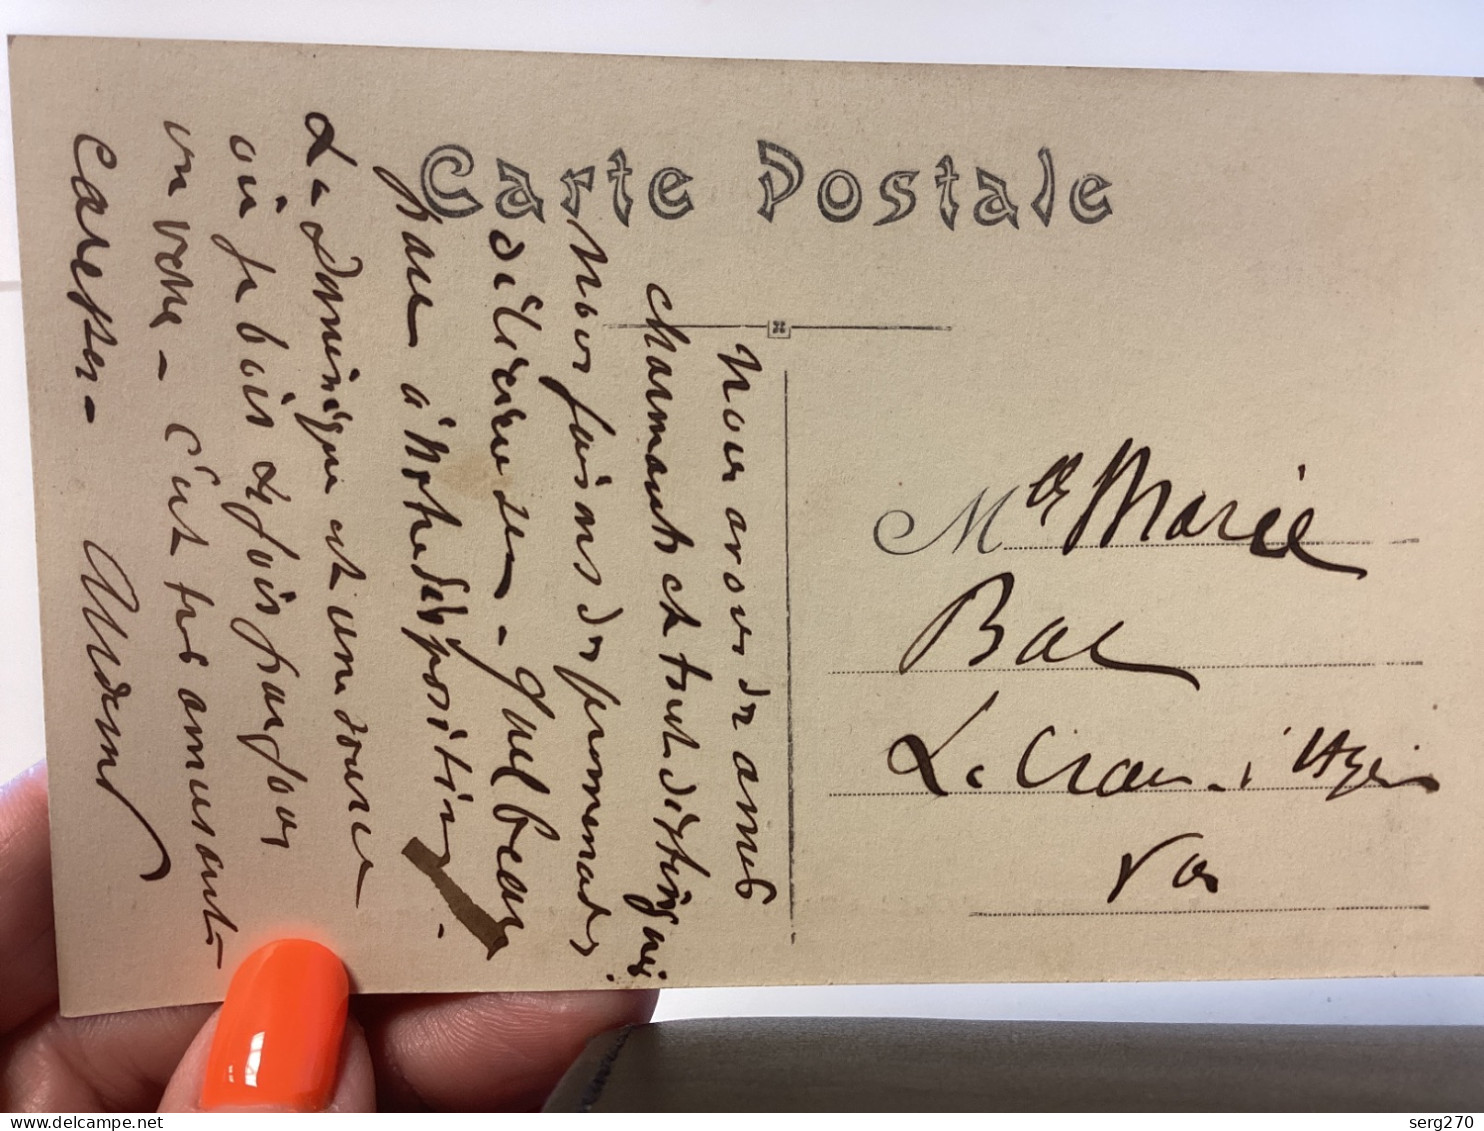 Carte Postale
Nous avons des amis
charmants et tout distingués
Nous faisons des promenades
délicieuses - quel beau
parc à notre disposition.
La dominique est une source
où je bois 2 fois par jour
un verre - c'est très amusant
Caresses -
Mlle Marie
Bac
La Crau - d'Hyères
Var
serg270